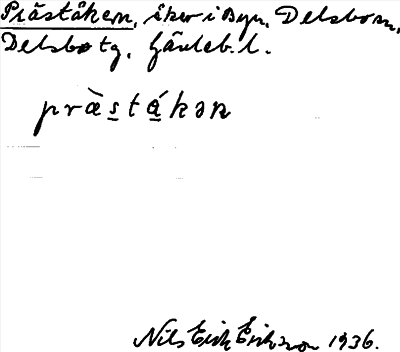 Präståkern, åker i Byn, Delsbo sn,
Delsbo tg, Gävleb. l.
præ̀stákən
Nils Erik Erikson 1936.